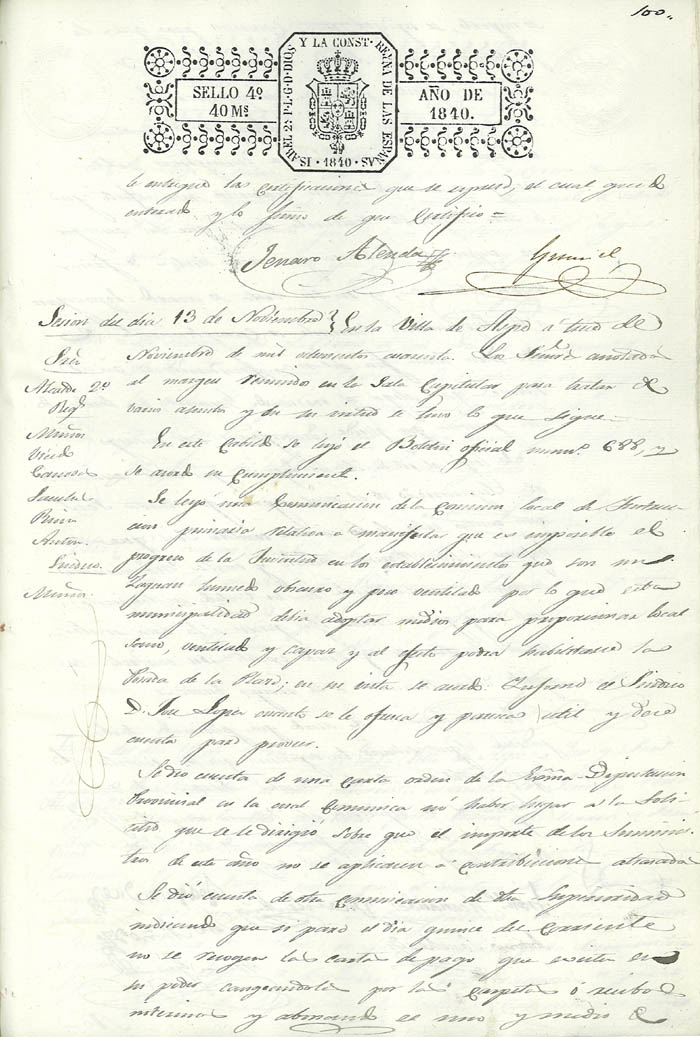 100.
ISABEL 2ª P. L. G. D DIOS Y LA CONST. REYNA DE LAS ESPAÑAS · 1840 ·
SELLO 4º
40 Ms
AÑO DE
1840.
le entregué las certificaciones que se espresó, el cual quedó
enterado y lo firmó de que Certifico =
Jenaro Alenda
Sesion del dia 13 de Noviembre
En la Villa de Aspe a trece de
Noviembre de mil ochocientos cuarenta. Los Señores anotados
al margen reunidos en la Sala Capitular para tratar de
varios asuntos y en su virtud se hizo lo que sigue
Sres
Alcalde 2º
Regs
Muñoz
Vicedo
Canovas
Antón
Síndico
Muñoz
En este Cabildo se leyó el Boletin oficial num.º 688, y
se acordó su cumplimiento.
Se leyó una Comunicacion de la Comision local de Instruc
cion primaria relativa a manifestar que es imposible el
progreso de la Juventud en los establecimientos que son un
Zaguan humedo obscuro y poco ventilado por lo que esta
municipalidad debia adoptar medios para proporcionar local
sano, ventilado y capaz y al efecto podia habilitarse la
Posada de la Plaza; en su vista se acordó: Informe el Síndico
D. José Lopez cuanto se le ofrezca y parezca util y dese
cuenta para proveer.
Se dió cuenta de una carta orden de la Exma. Diputacion
Provincial en la cual Comunica no haber lugar a la Soli
citud que se le dirigió sobre que el importe de los Suminis
tros de este año no se apliquen a contribuciones atrasadas
Se dió cuenta de otra Comunicacion de dha Superioridad
indicando que si para el dia quince del corriente
no se recogen las cartas de pago que existen en
su poder cangeandolas por las carpetas ó recibos
interinos y abonando el uno y medio %